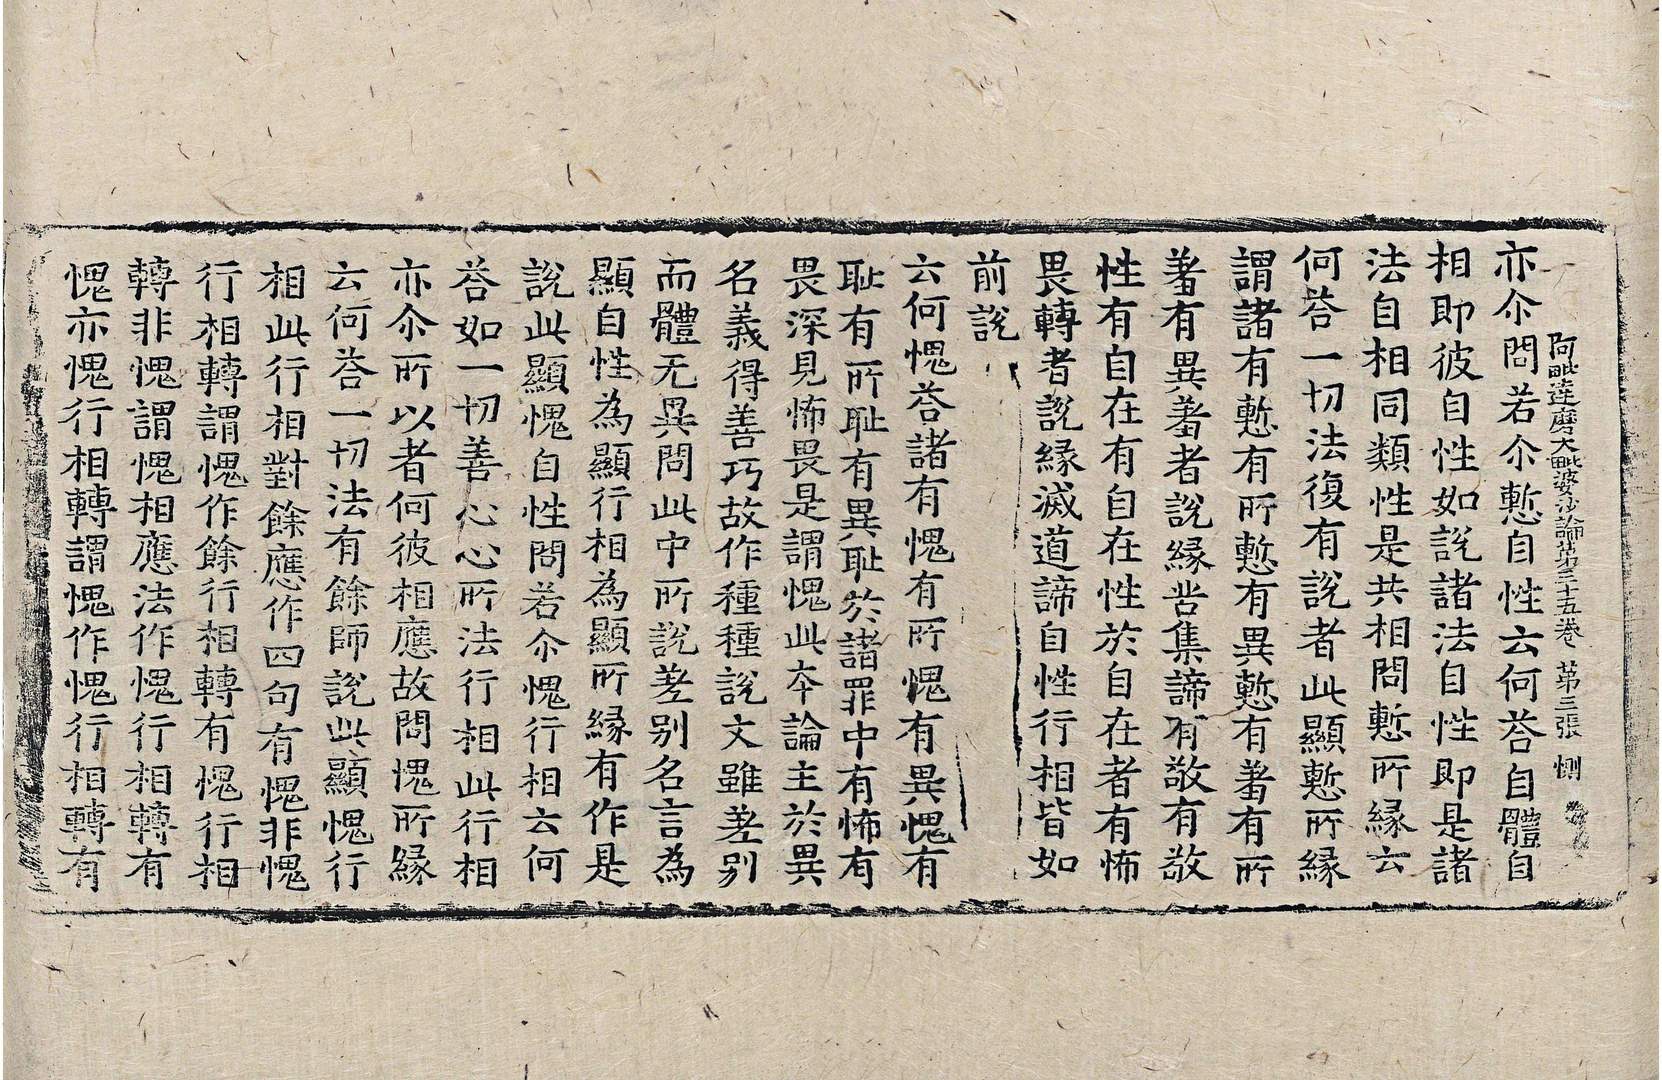 阿毗達磨大毗婆沙論第三十五卷 第三張 惻
亦尒問若尒慙自性云何荅自體自
相即彼自性如說諸法自性即是諸
法自相同類性是共相問慙所緣云
何荅一切法復有說者此顯慙所緣
謂諸有慙有所慙有異慙有著有所
著有異著者說緣苦集諦有敬有敬
性有自在有自在性於自在者有怖
畏轉者說緣滅道諦自性行相皆如
前說
云何愧荅諸有愧有所愧有異愧有
耻有所耻有異耻於諸罪中有怖有
畏深見怖畏是謂愧此本論主於異
名義得善巧故作種種說文雖差別
而體无異問此中所說差別名言為
顯自性為顯行相為顯所緣有作是
說此顯愧自性問若尒愧行相云何
荅如一切善心心所法行相此行相
亦尒所以者何彼相應故問愧所緣
云何荅一切法有餘師說此顯愧行
相此行相對餘應作四句有愧非愧
行相轉謂愧作餘行相轉有愧行相
轉非愧謂愧相應法作愧行相轉有
愧亦愧行相轉謂愧作愧行相轉有